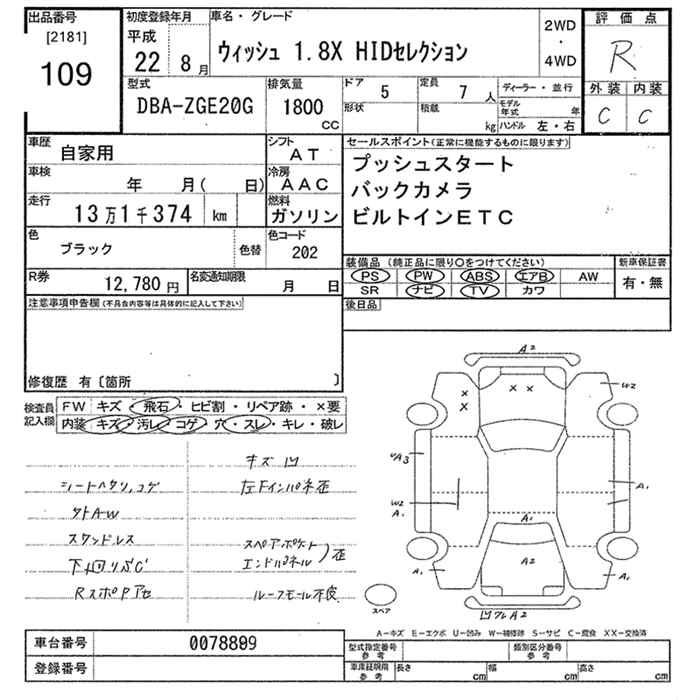 出品番号 初度登録年月 車名・グレード 評価点
[2181] 平成 2WD
109 22 8月 ウィッシュ 1.8X HIDセレクション ・ R
4WD
型式 排気量 ドア 5 定員 7人 ディーラー・並行 外装 内装
DBA-ZGE20G 1800 形状 積載 モデル年式 年 C C
cc kg ハンドル 左・右
車歴 自家用 シフト AT セールスポイント(正常に機能するものに限ります)
車検 年 月( 日) 冷房 AAC プッシュスタート
走行 13万1千374 km 燃料 ガソリン バックカメラ
ビルトインETC
色 ブラック 色替 色コード 202
装備品(純正品に限り○をつけてください) 新車保証書
R券 12,780円 名変通知期限 月 日 PS PW ABS エアB AW 有・無
SR ナビ TV カワ
注意事項申告欄(不具合内容等は具体的に記入して下さい) 後日品
修復歴 有〔箇所 〕
検査員記入欄 FW キズ・飛石・ヒビ割・リペア跡・×要
内装 キズ・汚レ・コゲ・穴・スレ・キレ・破レ
キズ 凹
シートヘタリ、コゲ 左Fインパネ歪
外AW
スタッドレス スペアポケット
下廻りサビC エンドパネル )歪
ルーフモール不良
A2
× × × × W2
A3 W2 A1 A1 A1
A2
A1 A1
A2
スペア
A-キズ E-エクボ U-凹み W-補修跡 S-サビ C-腐食 XX-交換済
車台番号 0078899 型式指定番号 参考 類別区分番号 参考
登録番号 車庫証明用 参考 長さ cm 幅 cm 高さ cm